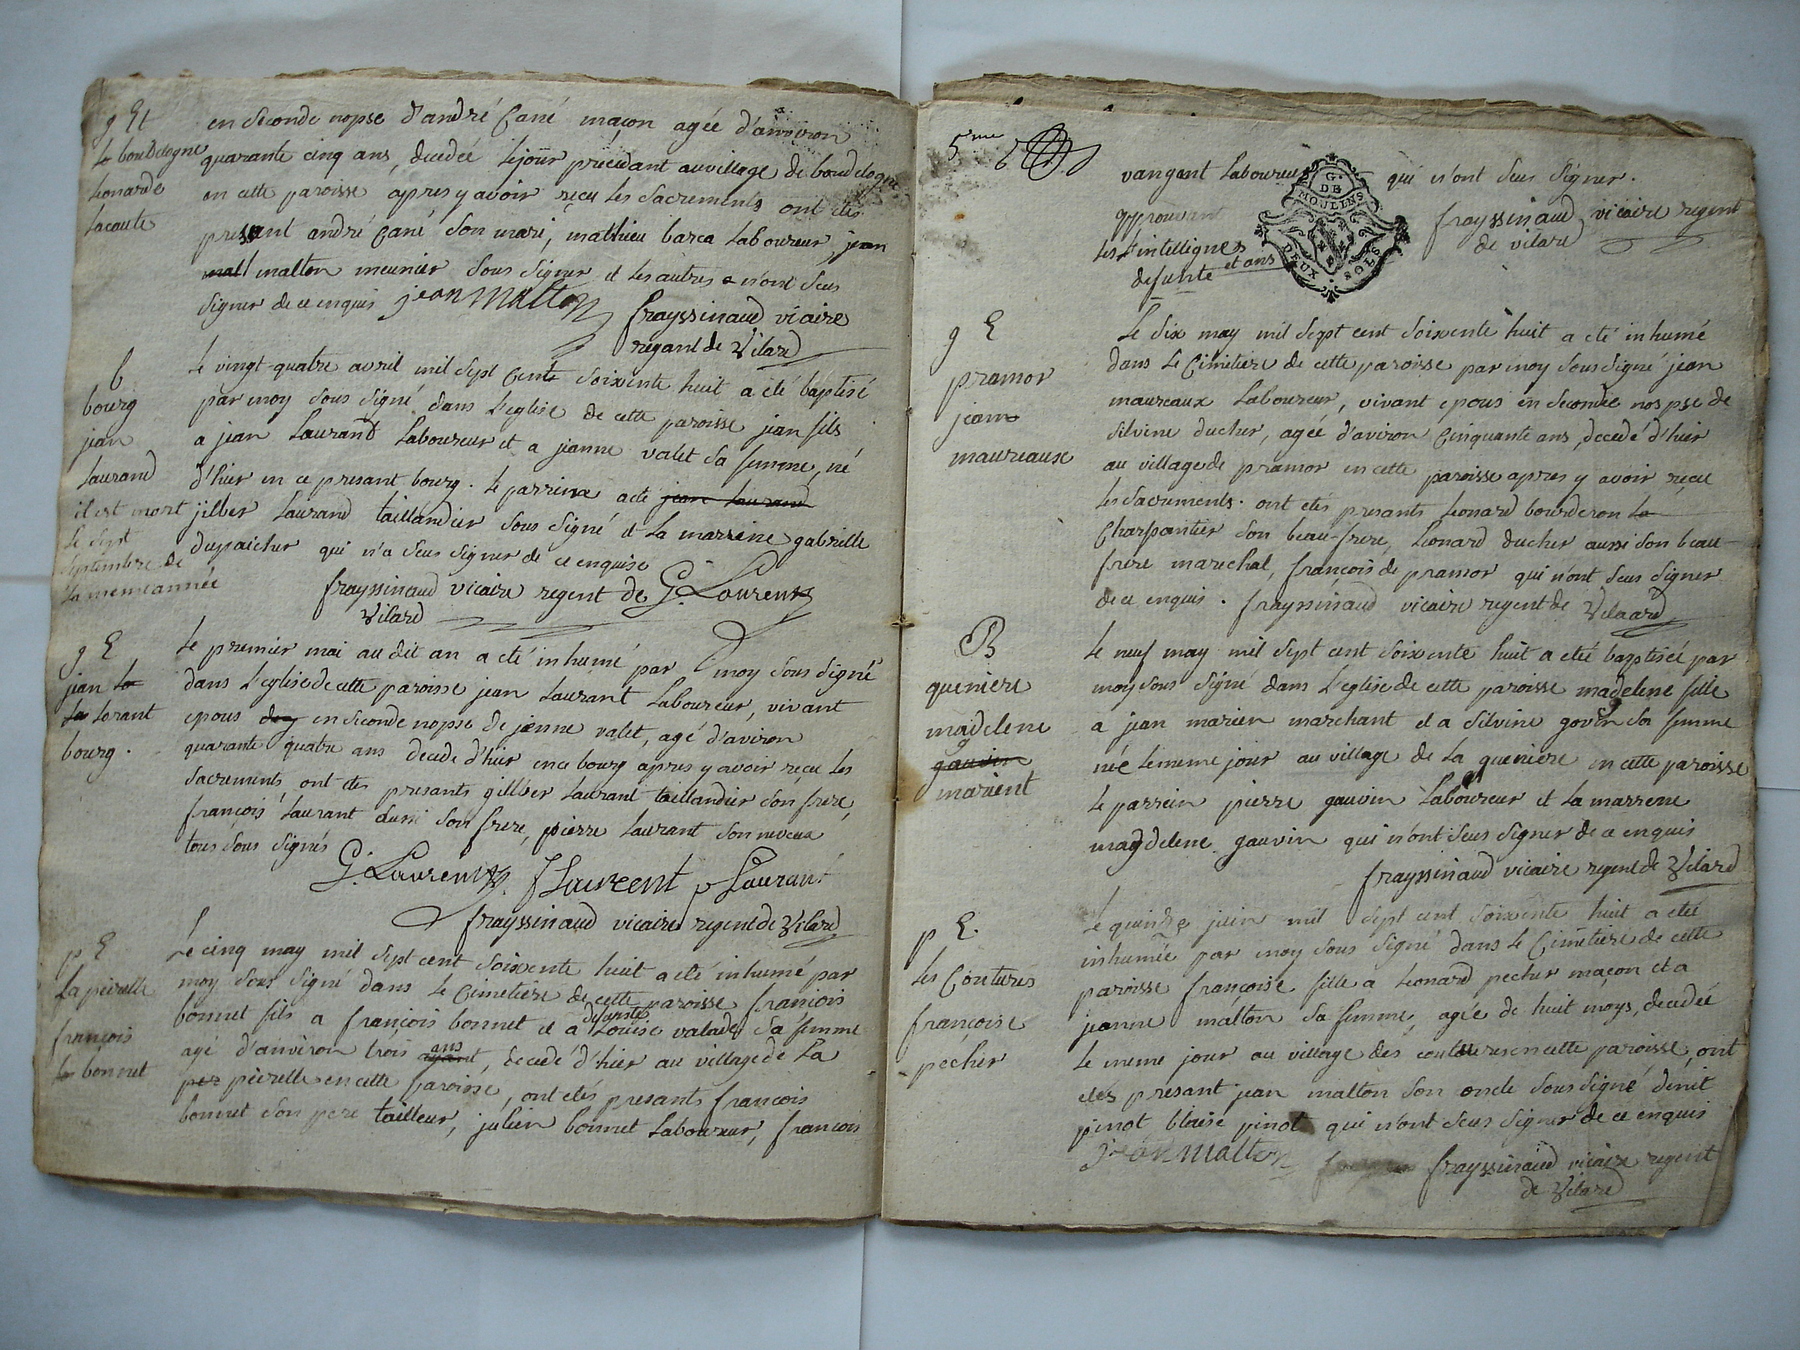 g Et
le boudelogne
Leonarde
Lacoute
en seconde nopse d'andré Cané maçon agée d'anviron
quarante cinq ans, decedée lejour precedant au village de boudelogne
en cette paroisse apres y avoir reçu les sacrements ont etés
present andré Cané son mari, mathieu barca laboureur, jean
malton meunier sous signer et les autres n'ont seus
signer de ce enquis jean malton
frayssinaud vicaire
regant de Vilard
b
bourg
jean
Laurand
il est mort
le sept
septembre de
la meme année
Le vingt quatre avril mil sept cent soixente huit a été baptisé
par moy sous signé dans l'eglise de cette paroisse jean fils
a jean Laurand Laboureur et a jeanne valet sa femme, né
d'hier en ce presant bourg. le parrine a eté jean laurand
jilber Laurand taillandier sous signé et la marrine gabrielle
dupaicher qui n'a seus signer de ce enquise
frayssinaud vicaire regent de G. Laurent
Vilard
g E
jean la
la lorant
bourg.
Le premier mai au dit an a eté inhumé par moy sous signé
dans l'eglise de cette paroisse jean Laurant Laboureur, vivant
epous en seconde nopse de jeanne valet, agé d'aviron
quarante quatre ans decede d'hier en ce bourg apres y avoir reçu les
sacrements, ont etes presants gilber Laurant taillandier son frere,
françois Laurant aussi son frere, pierre Laurant son neveux
tous sous signés
G. Laurent. f Laurent p Laurant
frayssinaud vicaire regent de Vilard
p E
La peirelle
françois
le bonnet
Le cinq may mil sept cent soixente huit a eté inhumé par
moy sous signé dans le Cimetiere de cette paroisse françois
bonnet fils a françois bonnet et a defunte Louise valade sa femme
agé d'anviron trois ans, decedé d'hier au village de la
per pierelle en cette paroisse, ont etés presants françois
bonnet son pere tailleur, julien bonnet Laboureur, françois
5me
vangant Laboureur qui n'ont seus signer.
G. DE MOULINS
DEUX SOLS
approuvant
les intellignes
defunte et ans
frayssinaud vicaire regent
de vilard
g E
pramor
jean
maureaux
Le six may mil sept cent soixente huit a eté inhumé
dans le Cimetiere de cette paroisse par moy sous signé jean
maureaux Laboureur, vivant epous en seconde nospse de
silvine ducher, agée d'aviron Cinquante ans, decedé d'hier
au village de pramor en cette paroisse apres y avoir reçu
les sacrements. ont etés presants Leonard bourderon le
Charpantier son beau-frere, Leonard ducher aussi son beau-
frere marechal, françois de pramor qui n'ont seus signer
de ce enquis. frayssinaud vicaire regent de Vilaard
B
queniere
magdelene
gauvin
marient
Le neuf may mil sept cent soixente huit a eté baptisée par
moy sous signé dans l'eglise de cette paroisse madelene fille
a jean marien marchant et a silvine goven sa femme
née le meme jour au village de la queniere en cette paroisse
Le parrein pierre gauvin Laboureur et la marrene
magdelene gauvin qui n'ont seus signer de ce enquis
frayssinaud vicaire regent de Vilard
p E.
les Coutures
françoise
pecher
Le quinze juin mil sept cent soixente huit a eté
inhumée par moy sous signé dans le Cimetiere de cette
paroisse françoise fille a Leonard pecher maçon et a
jeanne malton sa femme, agée de huit moys, decedée
le meme jour au village des coutures en cette paroisse, ont
etés presant jean malton son oncle sous signé denit
pinot blaise pinot qui n'ont seus signer de ce enquis
Jean malton frayssinaud vicaire regent
de Vilard